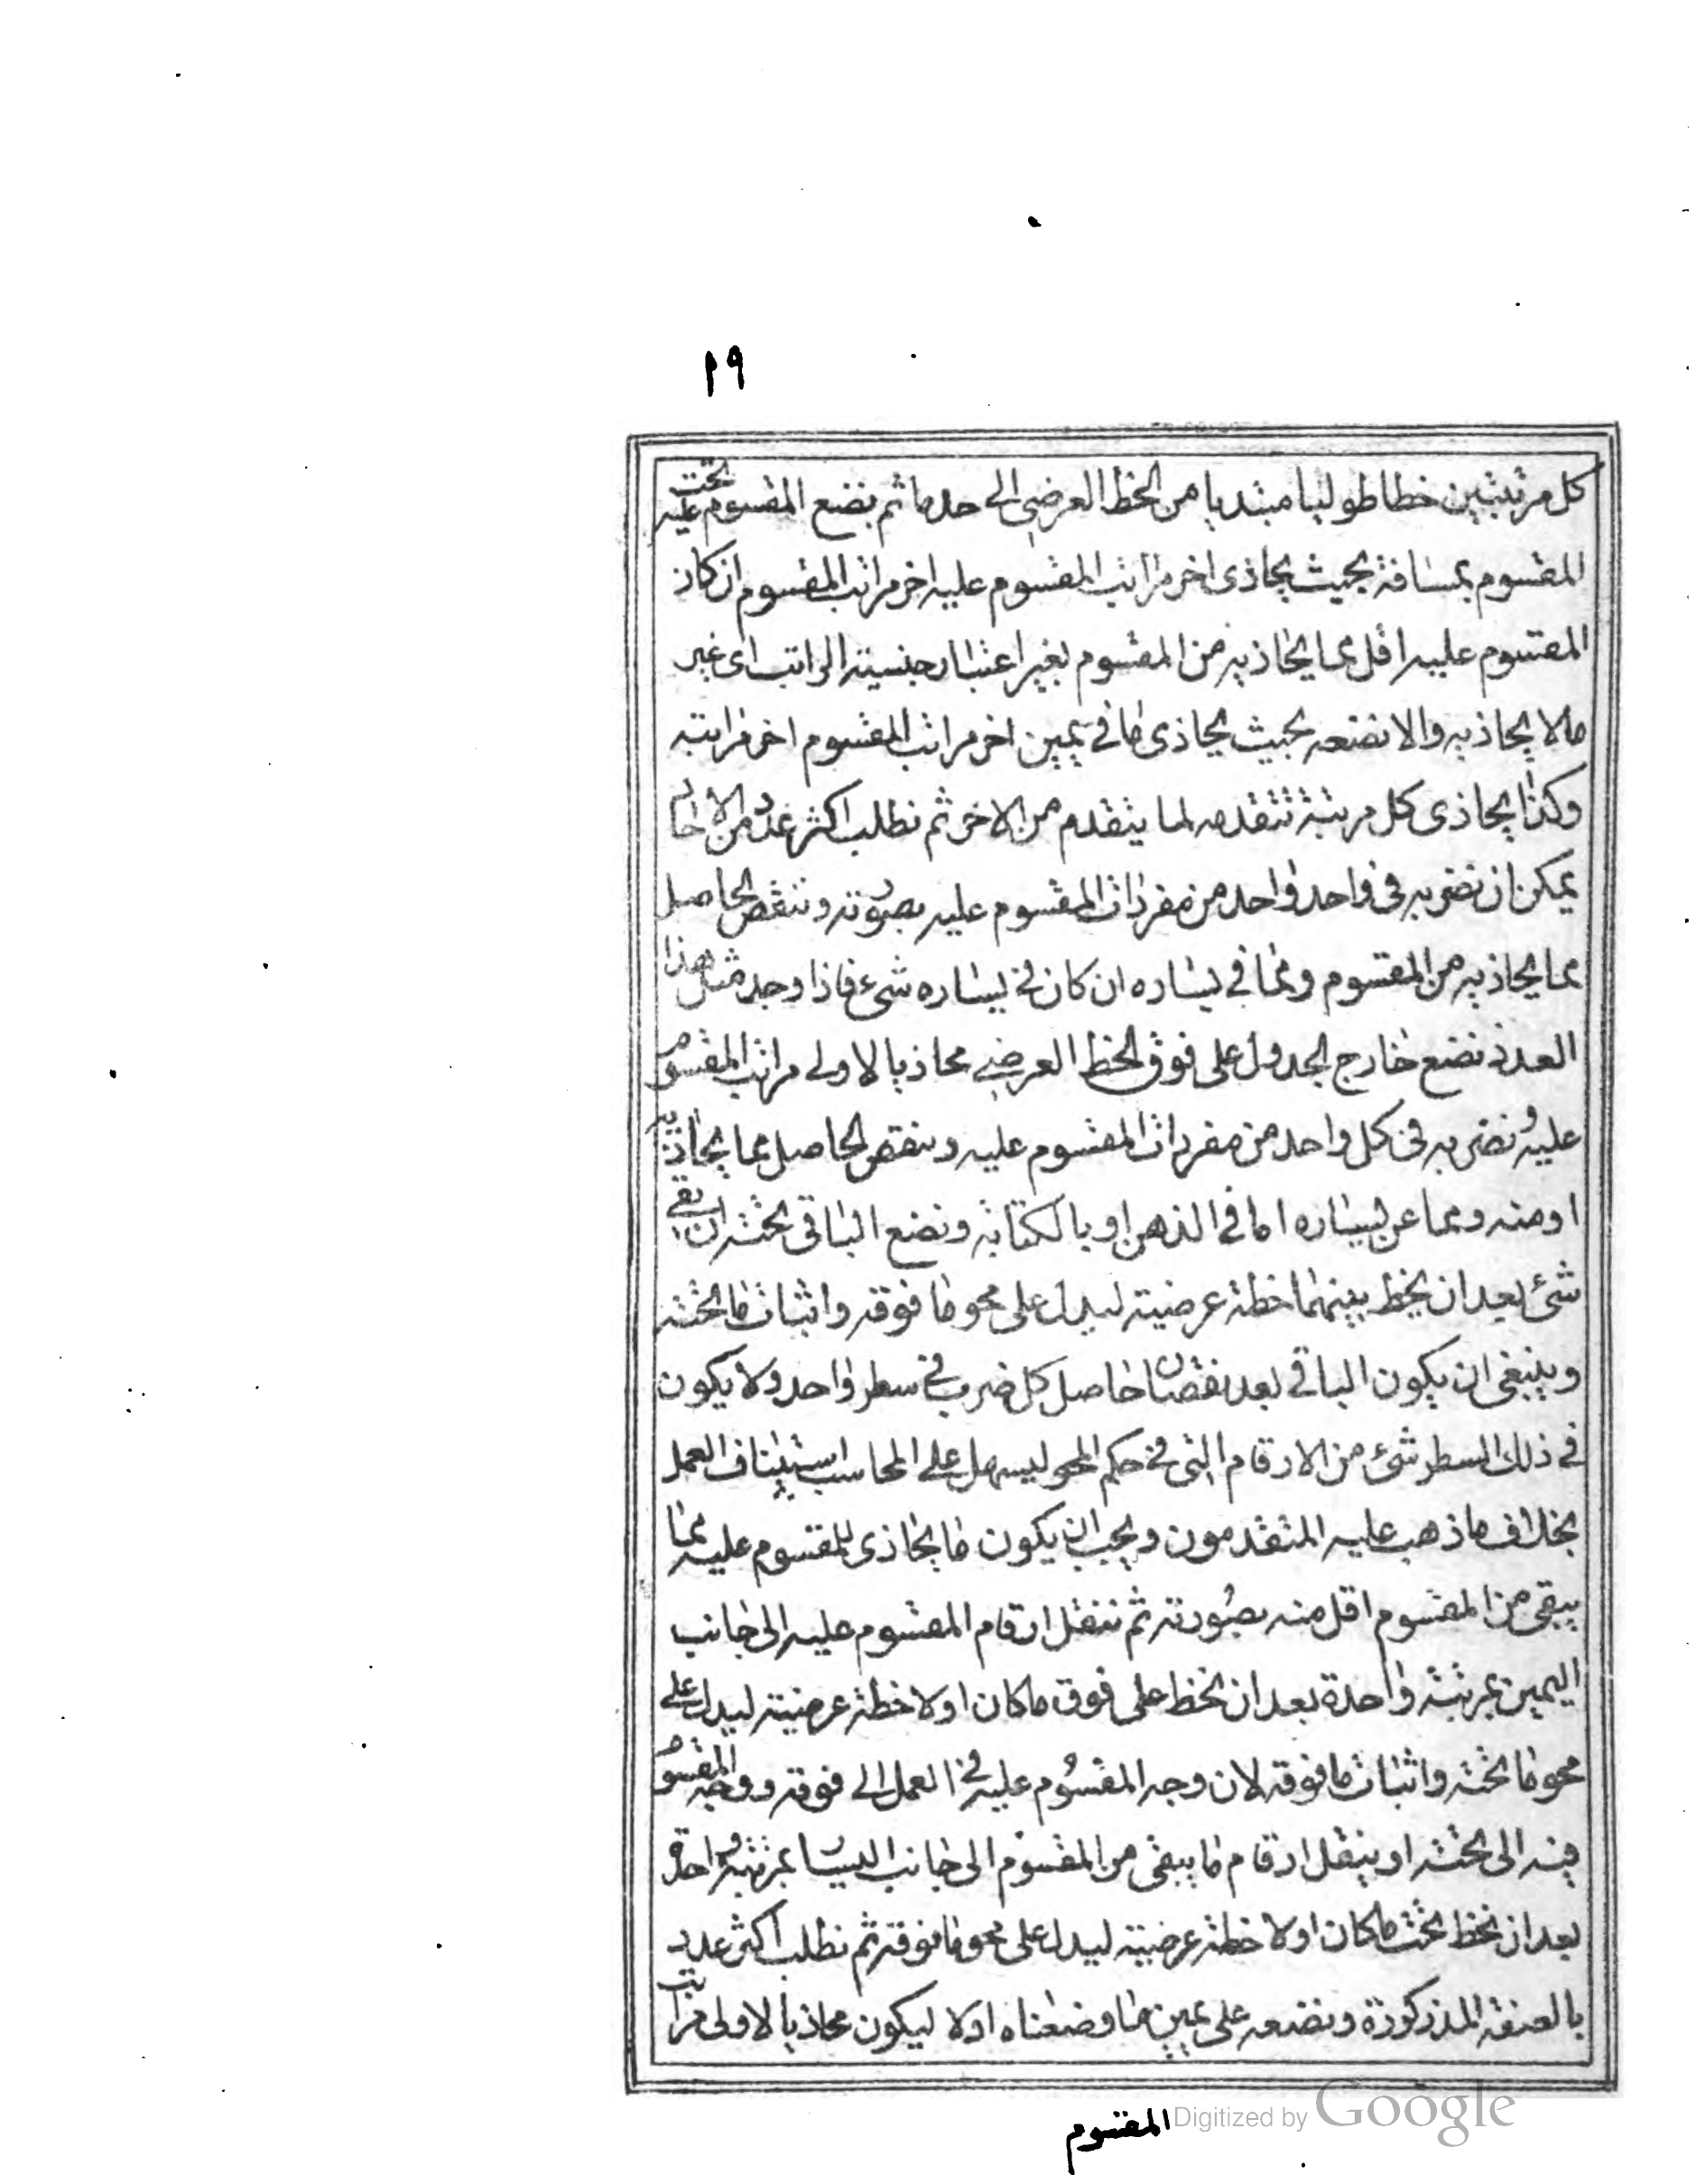 ١٩
كل مرتبتين خطا طوليا مبتديا من الخط العرضي الى حد ما ثم نضع المقسوم عليه تحت
المقسوم بمسافة بحيث يحاذى اخر مراتب المقسوم عليه اخر مراتب المقسوم ان كان
المقسوم عليه اقل مما يحاذيه من المقسوم بغير اعتبار جنسيته المراتب اى غير
ما لا يحاذيه والا نضعه بحيث يحاذى ما في يمين اخر مراتب المقسوم اخر مراتبه
وكذا يحاذى كل مرتبة تتقدمه لما يتقدم من الاخر ثم نطلب اكثر عدد من الاحاد
يمكن ان نضربه فى واحد واحد من مفردات المقسوم عليه بصورته وننقص الحاصل
مما يحاذيه من المقسوم ومما في يساره ان كان في يساره شىء فاذا وجد مثل هذا
العدد نضع خارج الجدول على فوق الخط العرضي محاذيا لاولى مراتب المقسوم
عليه ونضربه فى كل واحد من مفردات المقسوم عليه وننقص الحاصل مما يحاذيه
او منه ومما عن يساره اما في الذهن او بالكتابة ونضع الباقى تحته ان بقى
شئ بعد ان يخط بينهما خطة عرضية ليدل على محو ما فوقه واثبات ما تحته
وينبغى ان يكون الباقي بعد نقصان حاصل كل ضرب في سطر واحد ولا يكون
في ذلك السطر شئ من الارقام التى في حكم المحو ليسهل على المحاسب استيناف العمل
بخلاف ما ذهب عليه المتقدمون ويجب ان يكون ما يحاذى للمقسوم عليه مما
يبقى من المقسوم اقل منه بصورته ثم ننقل ارقام المقسوم عليه الى جانب
اليمين بمرتبة واحدة بعد ان نخط على فوق ما كان اولا خطة عرضية ليدل على
محو ما تحته واثبات ما فوقه لان وجه المقسوم عليه في العمل الى فوقه ووجه المقسوم
فيه الى تحته او ينقل ارقام ما يبقى من المقسوم الى جانب اليسار بمرتبة واحدة
بعد ان نخط تحت ما كان اولا خطة عرضية ليدل على محو ما فوقه ثم نطلب اكثر عدد
بالصفة المذكورة ونضعه على يمين ما وضعناه اولا ليكون محاذيا لاولى مراتب
المقسوم
Digitized by Google